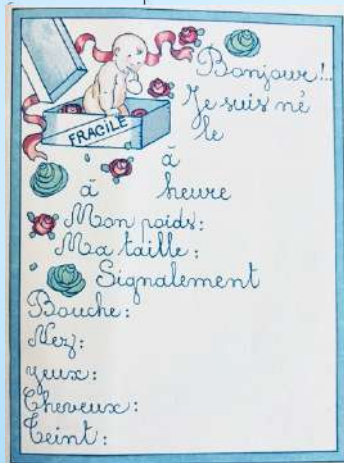 FRAGILE
Bonjour!..
Je suis né
le
à
à heure
Mon poids:
Ma taille:
Signalement
Bouche:
Nez:
yeux:
Cheveux:
Teint: